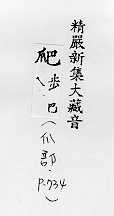 精嚴新集大藏音
爬 步巴（爪部．P.734）